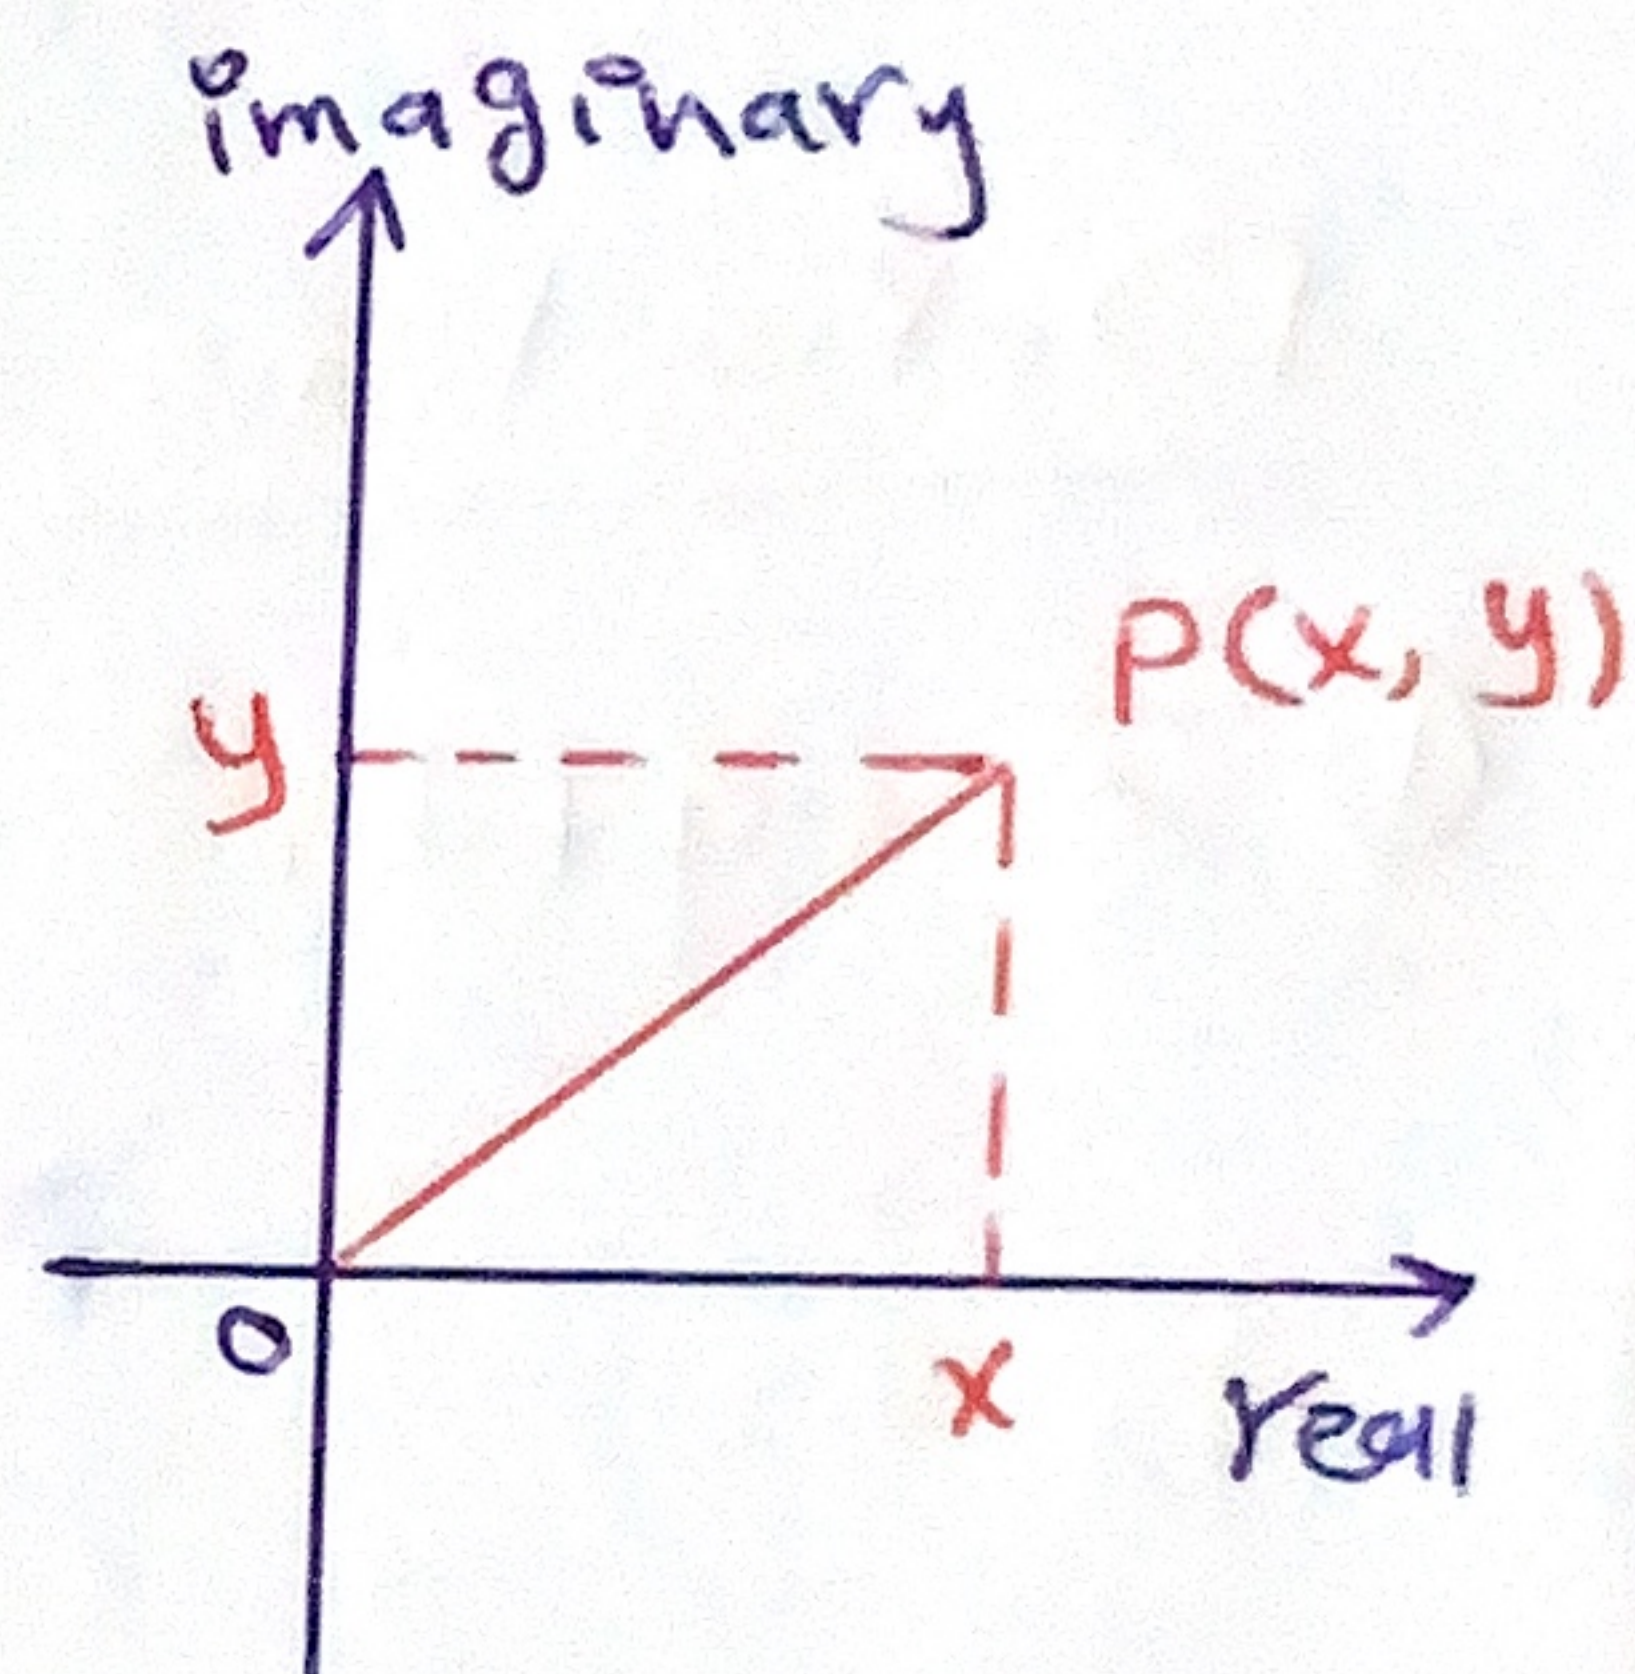 imaginary
P(x, y)
y
0
x
real